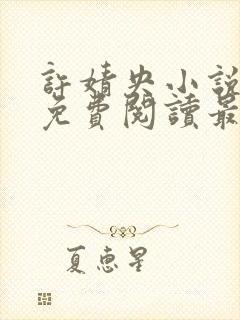 許婧央小說
免費閱讀最
夏惠星